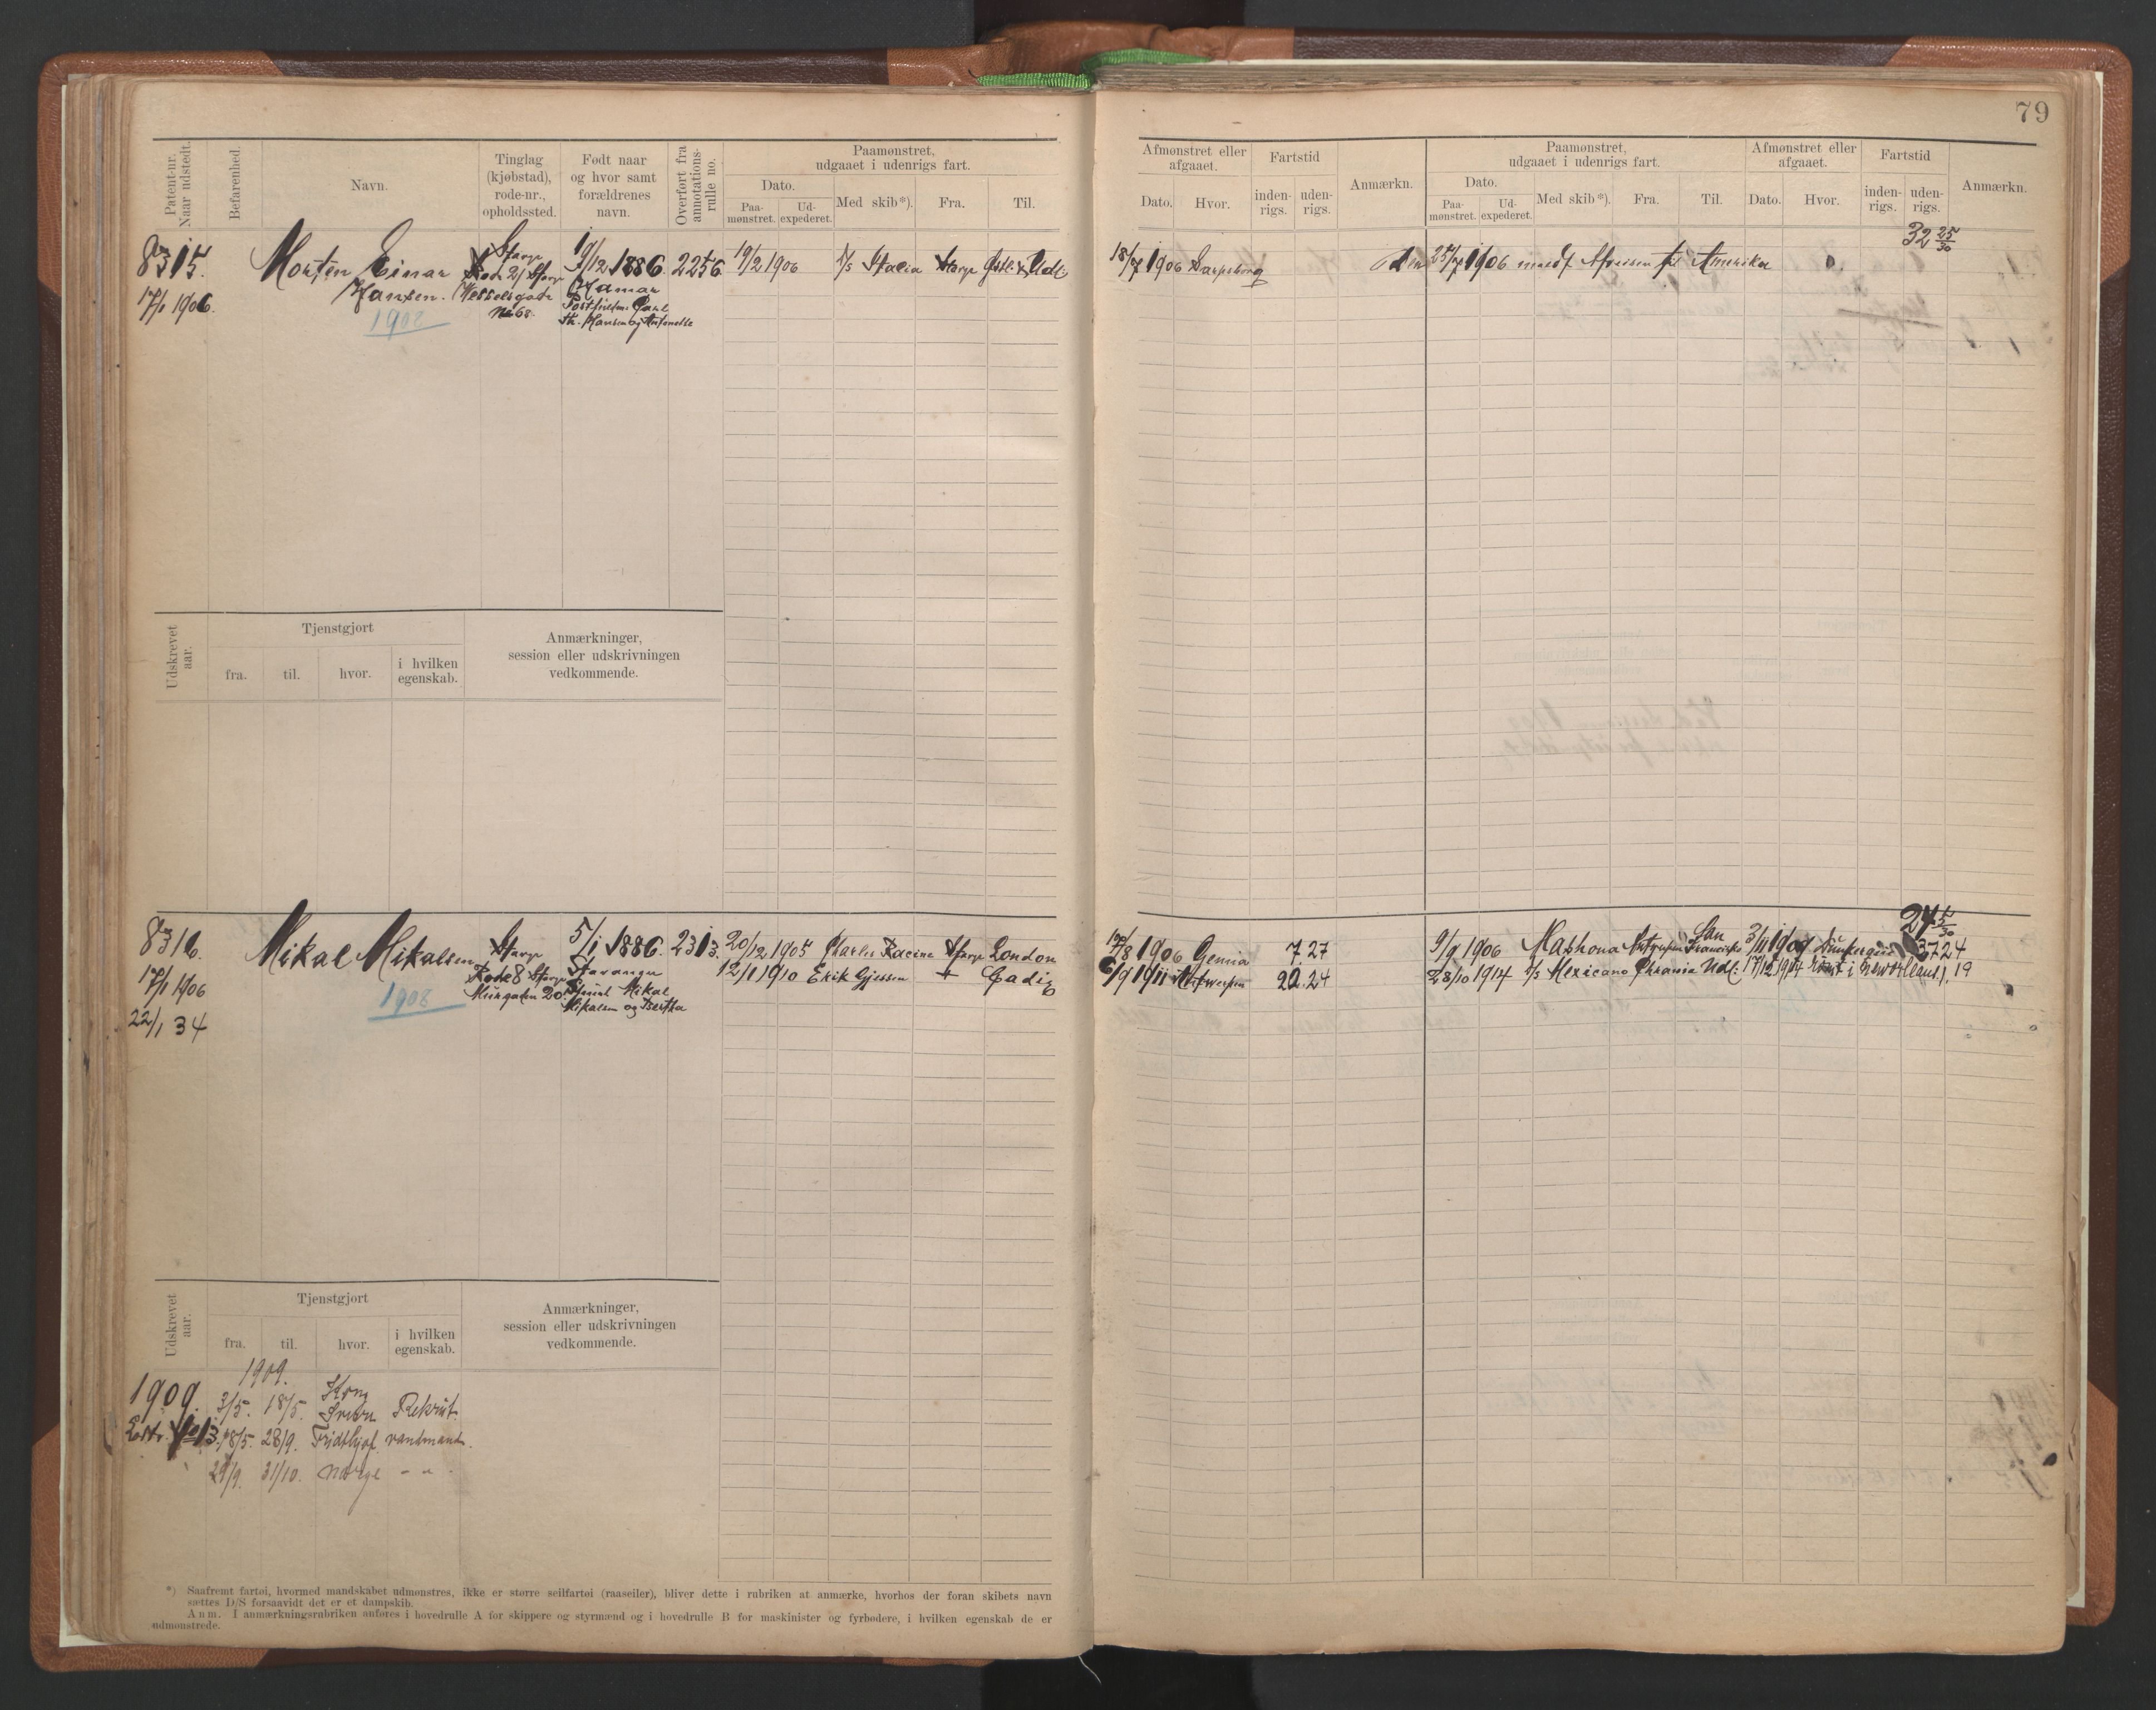 79
Patent-nr. Naar udstedt.
Befarenhed.
Navn.
Tinglag (kjøbstad), rode-nr., opholdssted.
Født naar og hvor samt forældrenes navn.
Overført fra annotations-rulle no.
Paamønstret, udgaaet i udenrigs fart.
Dato.
Paa-mønstret.
Ud-expederet.
Med skib*).
Fra.
Til.
Afmønstret eller afgaaet.
Dato.
Hvor.
Fartstid
inden-rigs.
uden-rigs.
Anmærkn.
Paamønstret, udgaaet i udenrigs fart.
Dato.
Paa-mønstret.
Ud-expederet.
Med skib*).
Fra.
Til.
Afmønstret eller afgaaet.
Dato.
Hvor.
Fartstid
inden-rigs.
uden-rigs.
Anmærkn.
32 25/30
8315.
17/1 1906.
Morten Einar
Hansen.
1908
Stavgr
Rode 21 Stavgr
Wesselsgade
No 68.
19/12 1886.
Hamar
2256.
19/2 1906
Stavgr
Udl:
18/7 1906
25/7 1906
til Amerika
Udskrevet aar.
Tjenstgjort
fra.
til.
hvor.
i hvilken egenskab.
Anmærkninger, session eller udskrivningen vedkommende.
24 5/30
8316.
17/1 1906
22/1 34
Mikal Mikalsen
1908
Stavgr
Rode 8 Stavgr
Mungaden 20.
5/1 1886.
Stavanger
Mikal
Mikalsen og Bertha
2313.
20/12 1905 Charles Racine Stavgr London
12/1 1910 Erik Gjessen + Cadiz
17/8 1906 Genua 7.27
6/9 1911 Antwerpen 20.24
9/9 1906 Mashona Antwerpen San Francisko
37 24
28/10 1914 D/s Mexicano Chrania Udl: 17/12 1914 rømt i New Orleans 1. 19
Udskrevet aar.
Tjenstgjort
fra.
til.
hvor.
i hvilken egenskab.
Anmærkninger, session eller udskrivningen vedkommende.
1909.
1909.
3/5. 18/5. Rekrut.
18/5. 28/9. Fridthjof.
29/9. 31/10. Norge - " -
*) Saafremt fartøi, hvormed mandskabet udmønstres, ikke er større seilfartøi (raaseiler), bliver dette i rubriken at anmærke, hvorhos der foran skibets navn
sættes D/S forsaavidt det er et dampskib.
Anm. I anmærkningsrubriken anføres i hovedrulle A for skippere og styrmænd og i hovedrulle B for maskinister og fyrbødere, i hvilken egenskab de er
udmønstrede.